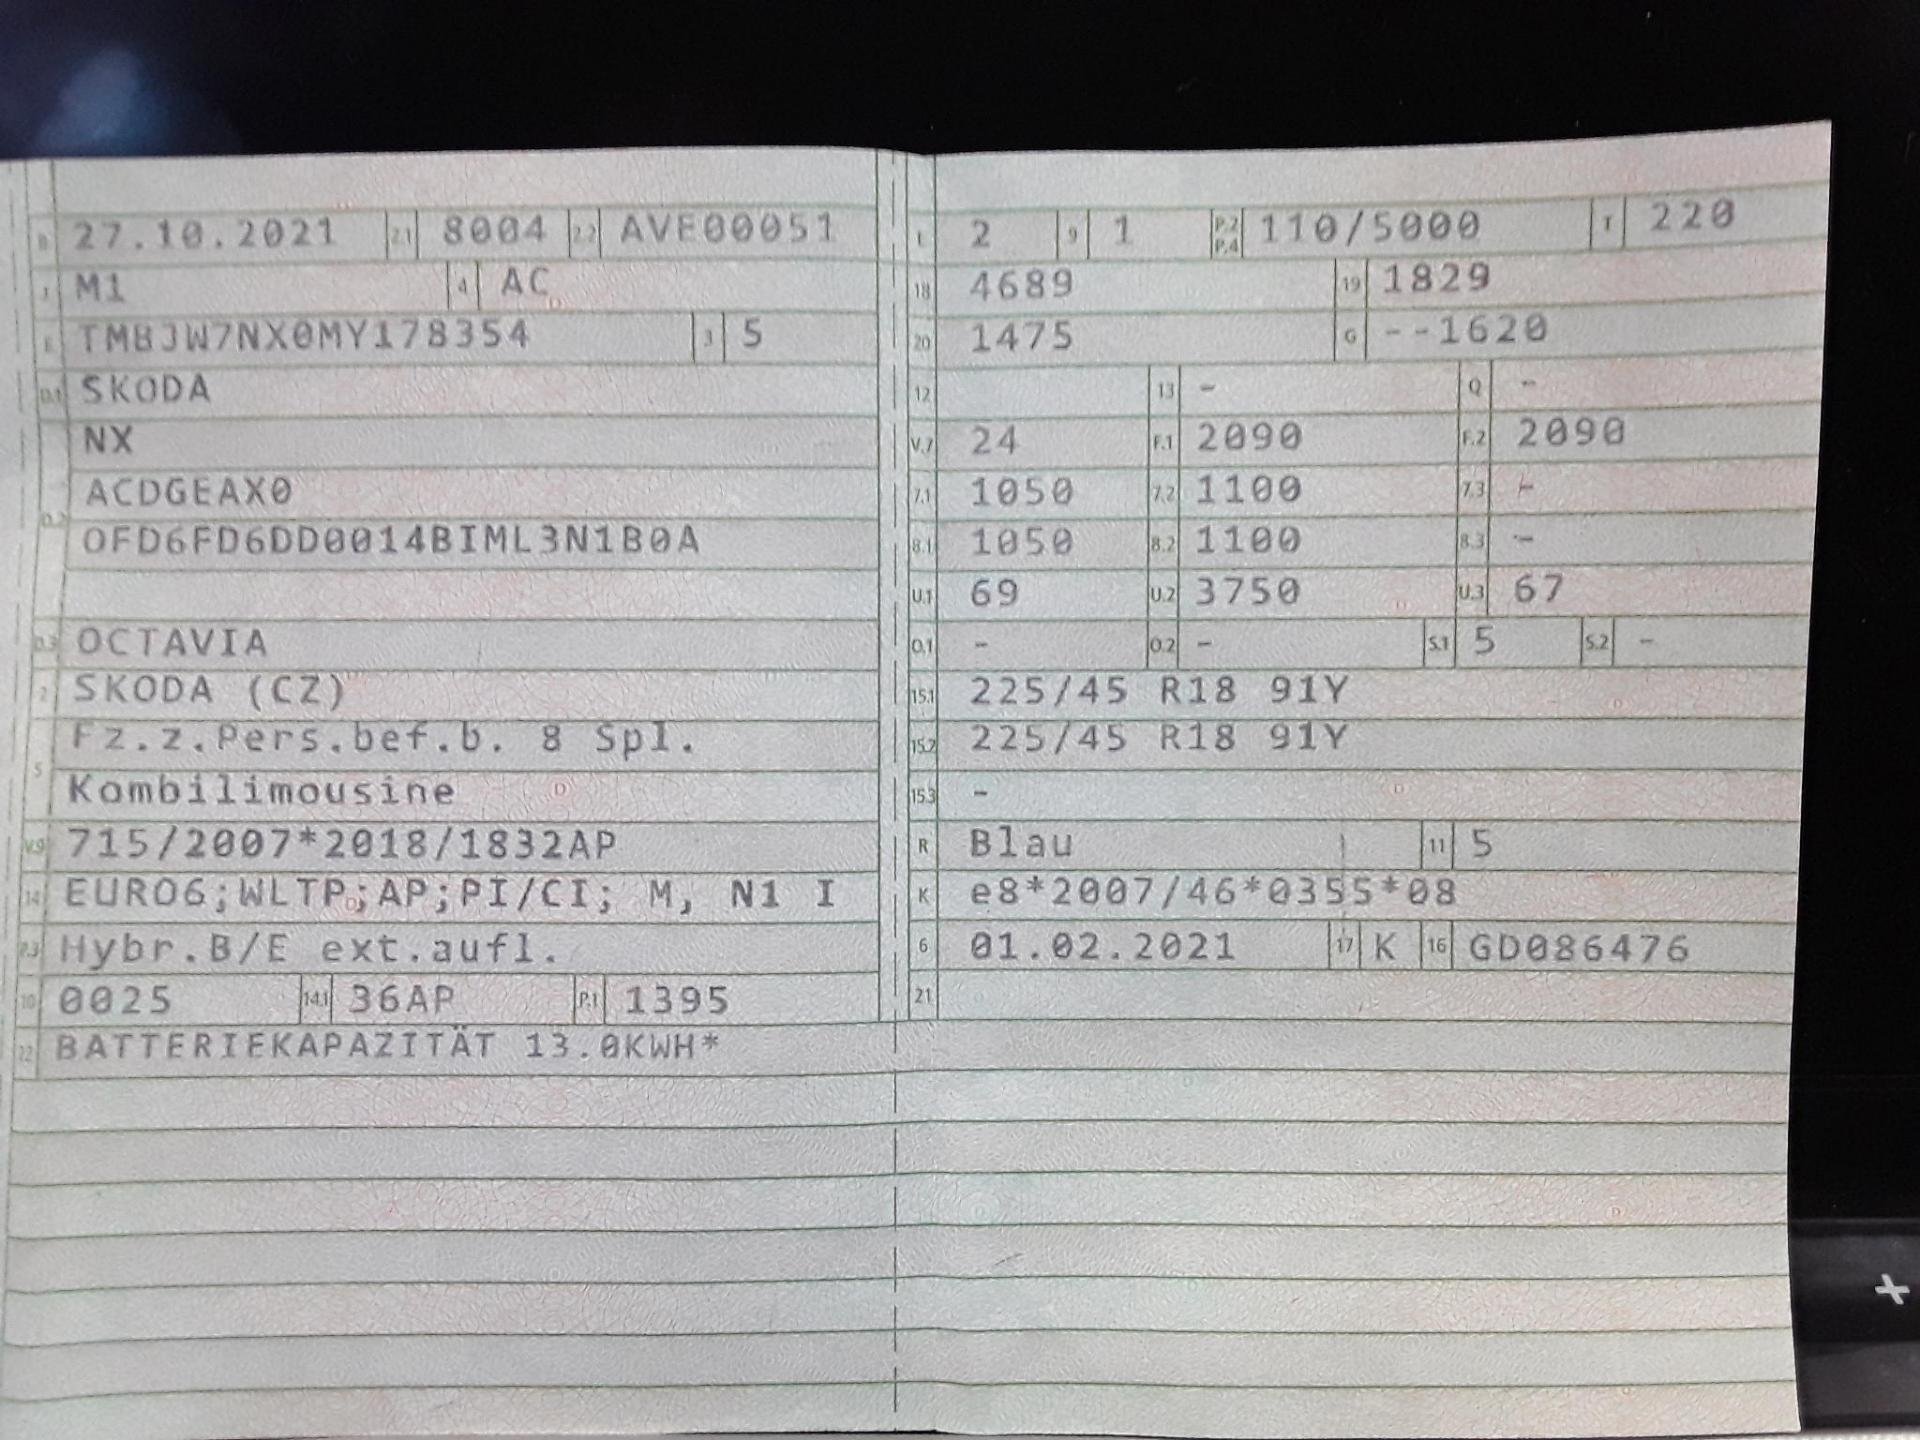 B 27.10.2021 2.1 8004 2.2 AVE00051
J M1 4 AC
E TMBJW7NX0MY178354 3 5
D.1 SKODA
NX
D.2 ACDGEAX0
OFD6FD6DD0014BIML3N1B0A
D.3 OCTAVIA
2 SKODA (CZ)
Fz.z.Pers.bef.b. 8 Spl.
5 Kombilimousine
V.9 715/2007*2018/1832AP
14 EURO6;WLTP;AP;PI/CI; M, N1 I
P.3 Hybr.B/E ext.aufl.
10 0025 14.1 36AP P.1 1395
22 BATTERIEKAPAZITÄT 13.0KWH*
L 2 9 1 P.2 P.4 110/5000 T 220
18 4689 19 1829
20 1475 G --1620
12 13 - Q -
V.7 24 F.1 2090 F.2 2090
7.1 1050 7.2 1100 7.3 -
8.1 1050 8.2 1100 8.3 -
U.1 69 U.2 3750 U.3 67
O.1 - O.2 - S.1 5 S.2 -
15.1 225/45 R18 91Y
15.2 225/45 R18 91Y
15.3 -
R Blau 11 5
K e8*2007/46*0355*08
6 01.02.2021 17 K 16 GD086476
21
+